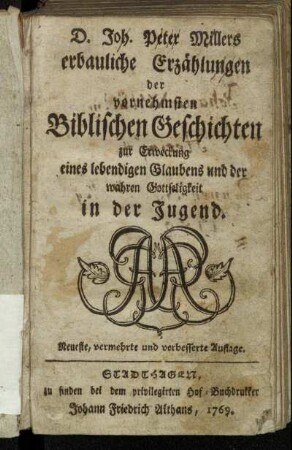 D. Joh. Peter Millers
erbauliche Erzählungen
der
vornehmsten
Biblischen Geschichten
zur Erweckung
eines lebendigen Glaubens und der
wahren Gottseligkeit
in der Jugend.
Neueste, vermehrte und verbesserte Auflage.
STADTHAGEN,
zu finden bei dem privilegirten Hof-Buchdrukker
Johann Friedrich Althans, 1769.